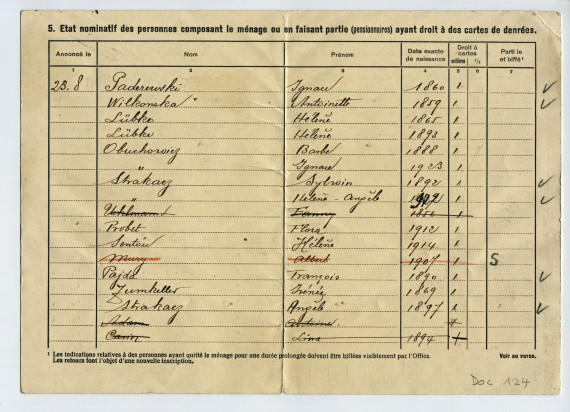 5. Etat nominatif des personnes composant le ménage ou en faisant partie (pensionnaires) ayant droit à des cartes de denrées.
Annoncé le Nom Prénom Date exacte de naissance Droit à cartes entières ½ Parti le et biffé¹
1 2 3 4 5 6 7
23.8 Paderewski Ignace 1860 1
Wilkonska Antoinette 1859 1
Lübke Hélène 1865 1
Lübke Helene 1893 1
Obuchowicz Barbe 1888 1
" Ignace 1923 1
Strakacz Sylwin 1892 1
" Helene-Angèle 1
Uehlmann Fanny 1
Probet Flora 1912 1
Hélène 1914 1
Meury Albert 1907 1 S
Pajda François 1890 1
Zumkeller Irénée 1869 1
Strakacz Angèle 1897 1
Adam Antoine
Lina 1894 1
¹ Les indications relatives à des personnes ayant quitté le ménage pour une durée prolongée doivent être biffées visiblement par l'Office.
Les retours font l'objet d'une nouvelle inscription.
Voir au verso.
Doc 124